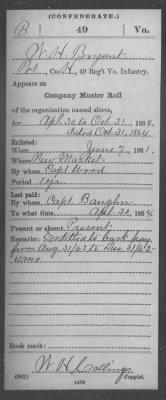 (CONFEDERATE.)
B 49 Va.
W. H. Bryant
Pvt, Co. H, 49 Reg't Va. Infantry.
Appears on
Company Muster Roll
of the organization named above,
for Apl. 30 to Oct. 31, 1864
dated Oct. 31, 1864
Enlisted:
When June 7, 1861.
Where New Market
By whom Capt Wood
Period 1 year
Last paid:
By whom Capt. Baughn
To what time Apl. 30, 1864
Present or absent Present
Remarks: Entitled to back pay
from Aug 31/63 to Dec. 31/63
4 mos.
Book mark:
W. H. Collings
(642) Copyist.